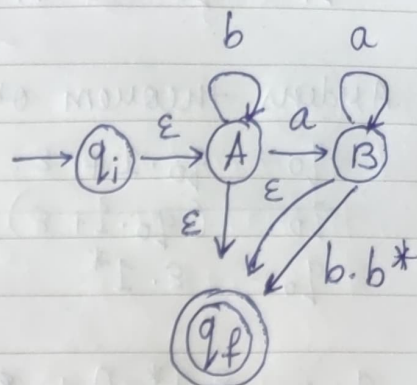 b a
q_i ε A a B
ε ε
b.b*
q_f